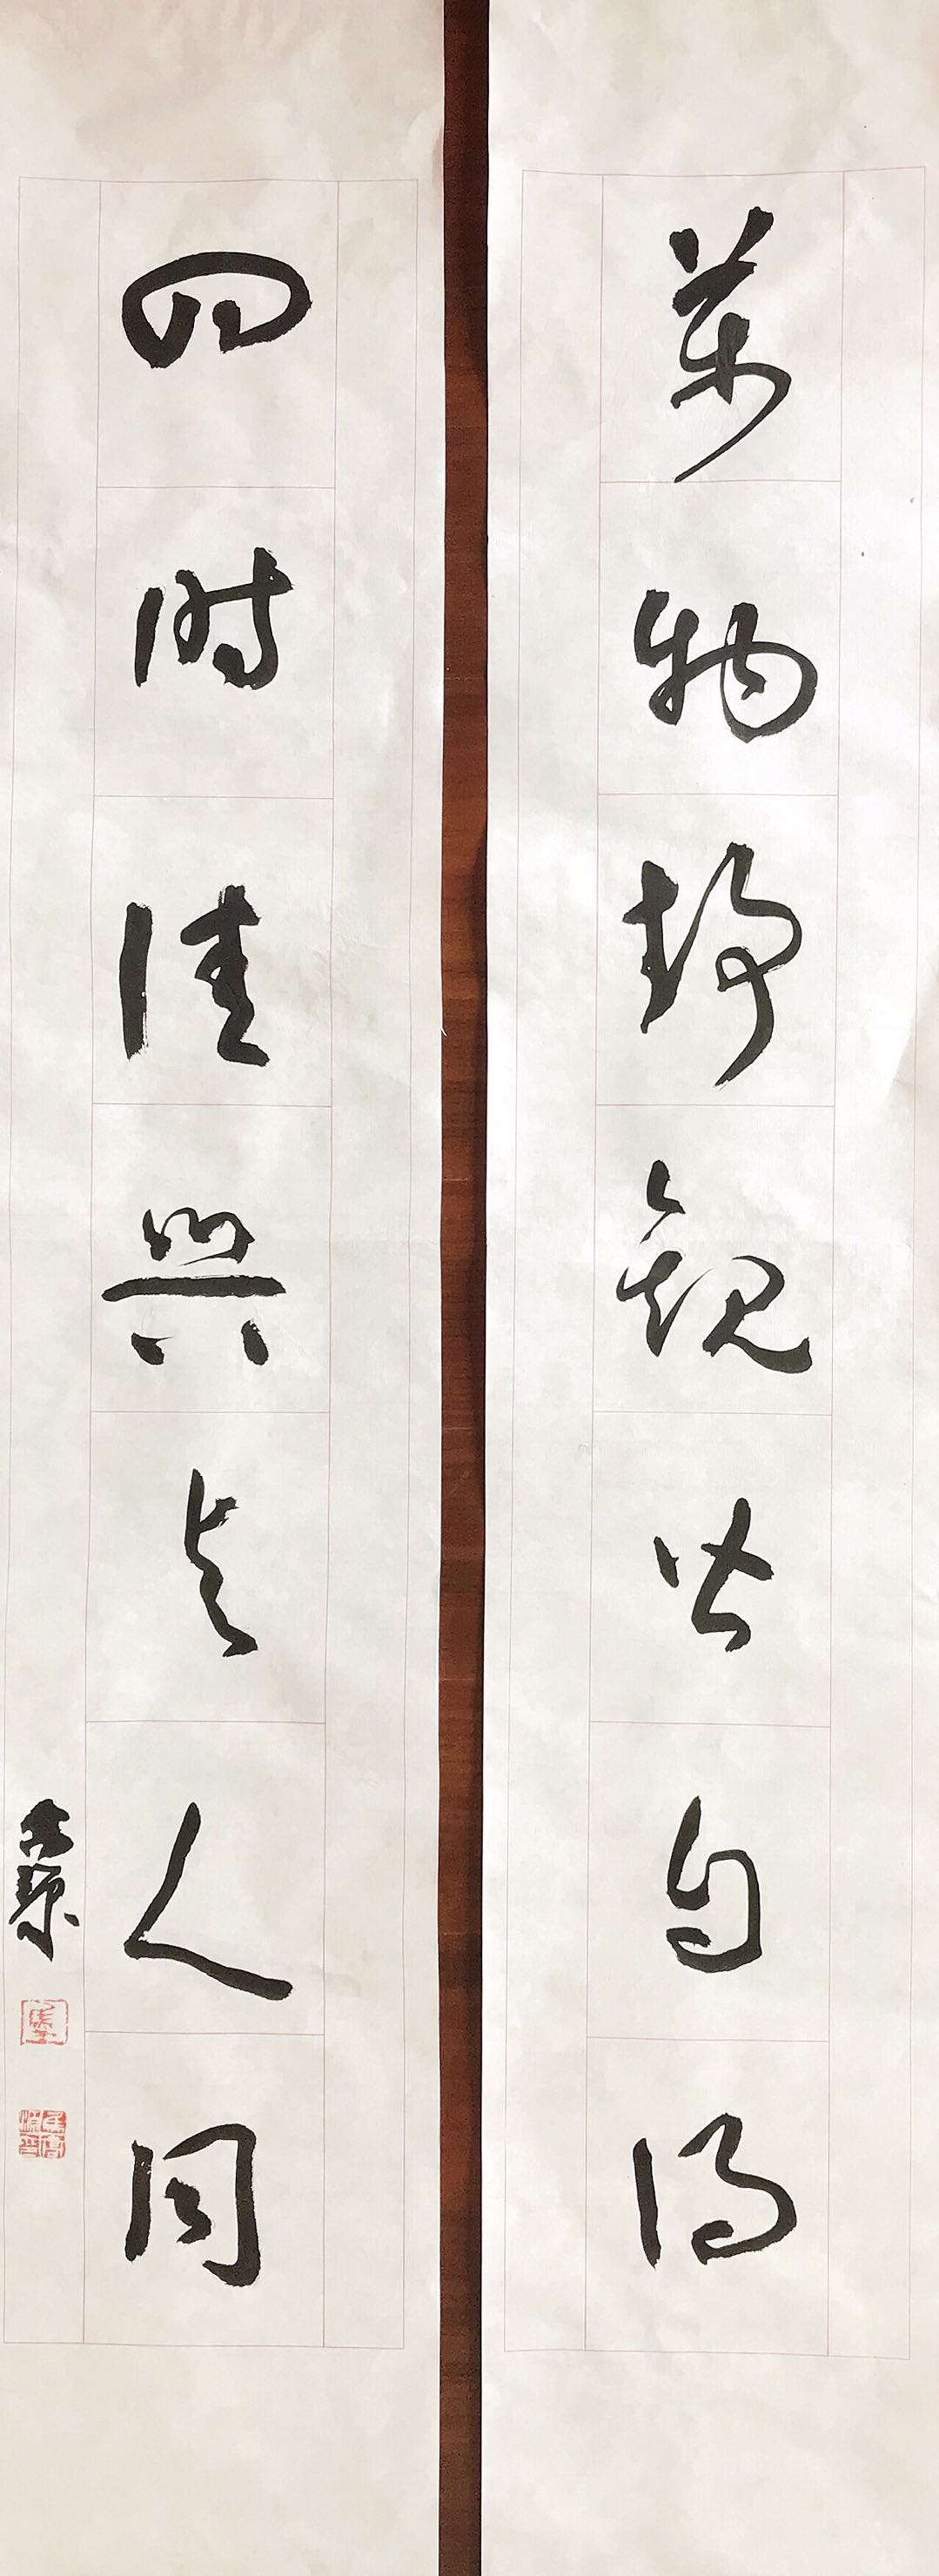 萬物静觀皆自得
四時佳興與人同